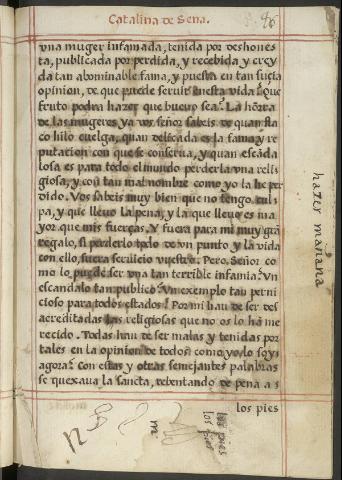 Catalina de Sena.
86
vna muger infamada, tenida por deshones
ta, publicada por perdida, y recebida y crey
da tan abominable fama, y puesta en tan suçia
opinion, de que puede seruir en esta vida? que
fruto podra hazer que bueno sea? La hõrra
de las mugeres ya vos señor sabeis de quan fla
co hilo cuelga, quan delicada es la fama y re
putacion con que se conserua, y quan escãda
losa es para todo el mundo perderla vna reli
giosa, y con tan mal nombre como yo la he per
dido. Vos sabeis muy bien que no tengo cul
pa, y que lleuo la pena, y la que lleuo es ma
yor que mis fuerças. Y fuera para mi muy grã
regalo, si perderlo todo de vn punto y la vida
con ello, fuera seruicio vuestro. Pero, Señor co
mo lo puede ser vna tan terrible infamia? Vn
escandalo tan publico? Vn exemplo tan perni
cioso para todos estados? Por mi han de ser des
acreditadas las religiosas que no os lo hã me
recido. Todas han de ser malas y tenidas por
tales en la opinion de todos como yo lo soy
agora? con estas y otras semejantes palabras
se quexaua la sancta, rebentando de pena a s
los pies
hazer mañana
los pies
los pies
m.